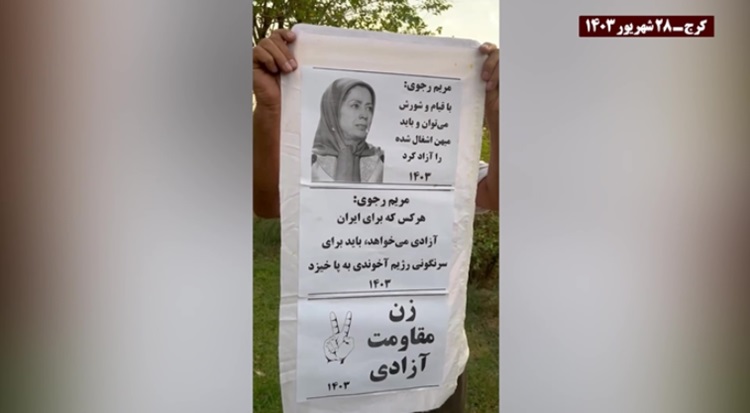 کرج_ ۲۸ شهریور ۱۴۰۳
مریم رجوی:
با قیام و شورش
می‌توان و باید
میهن اشغال شده
را آزاد کرد
۱۴۰۳
مریم رجوی:
هرکس که برای ایران
آزادی می‌خواهد، باید برای
سرنگونی رژیم آخوندی به پا خیزد
۱۴۰۳
زن
مقاومت
آزادی
۱۴۰۳